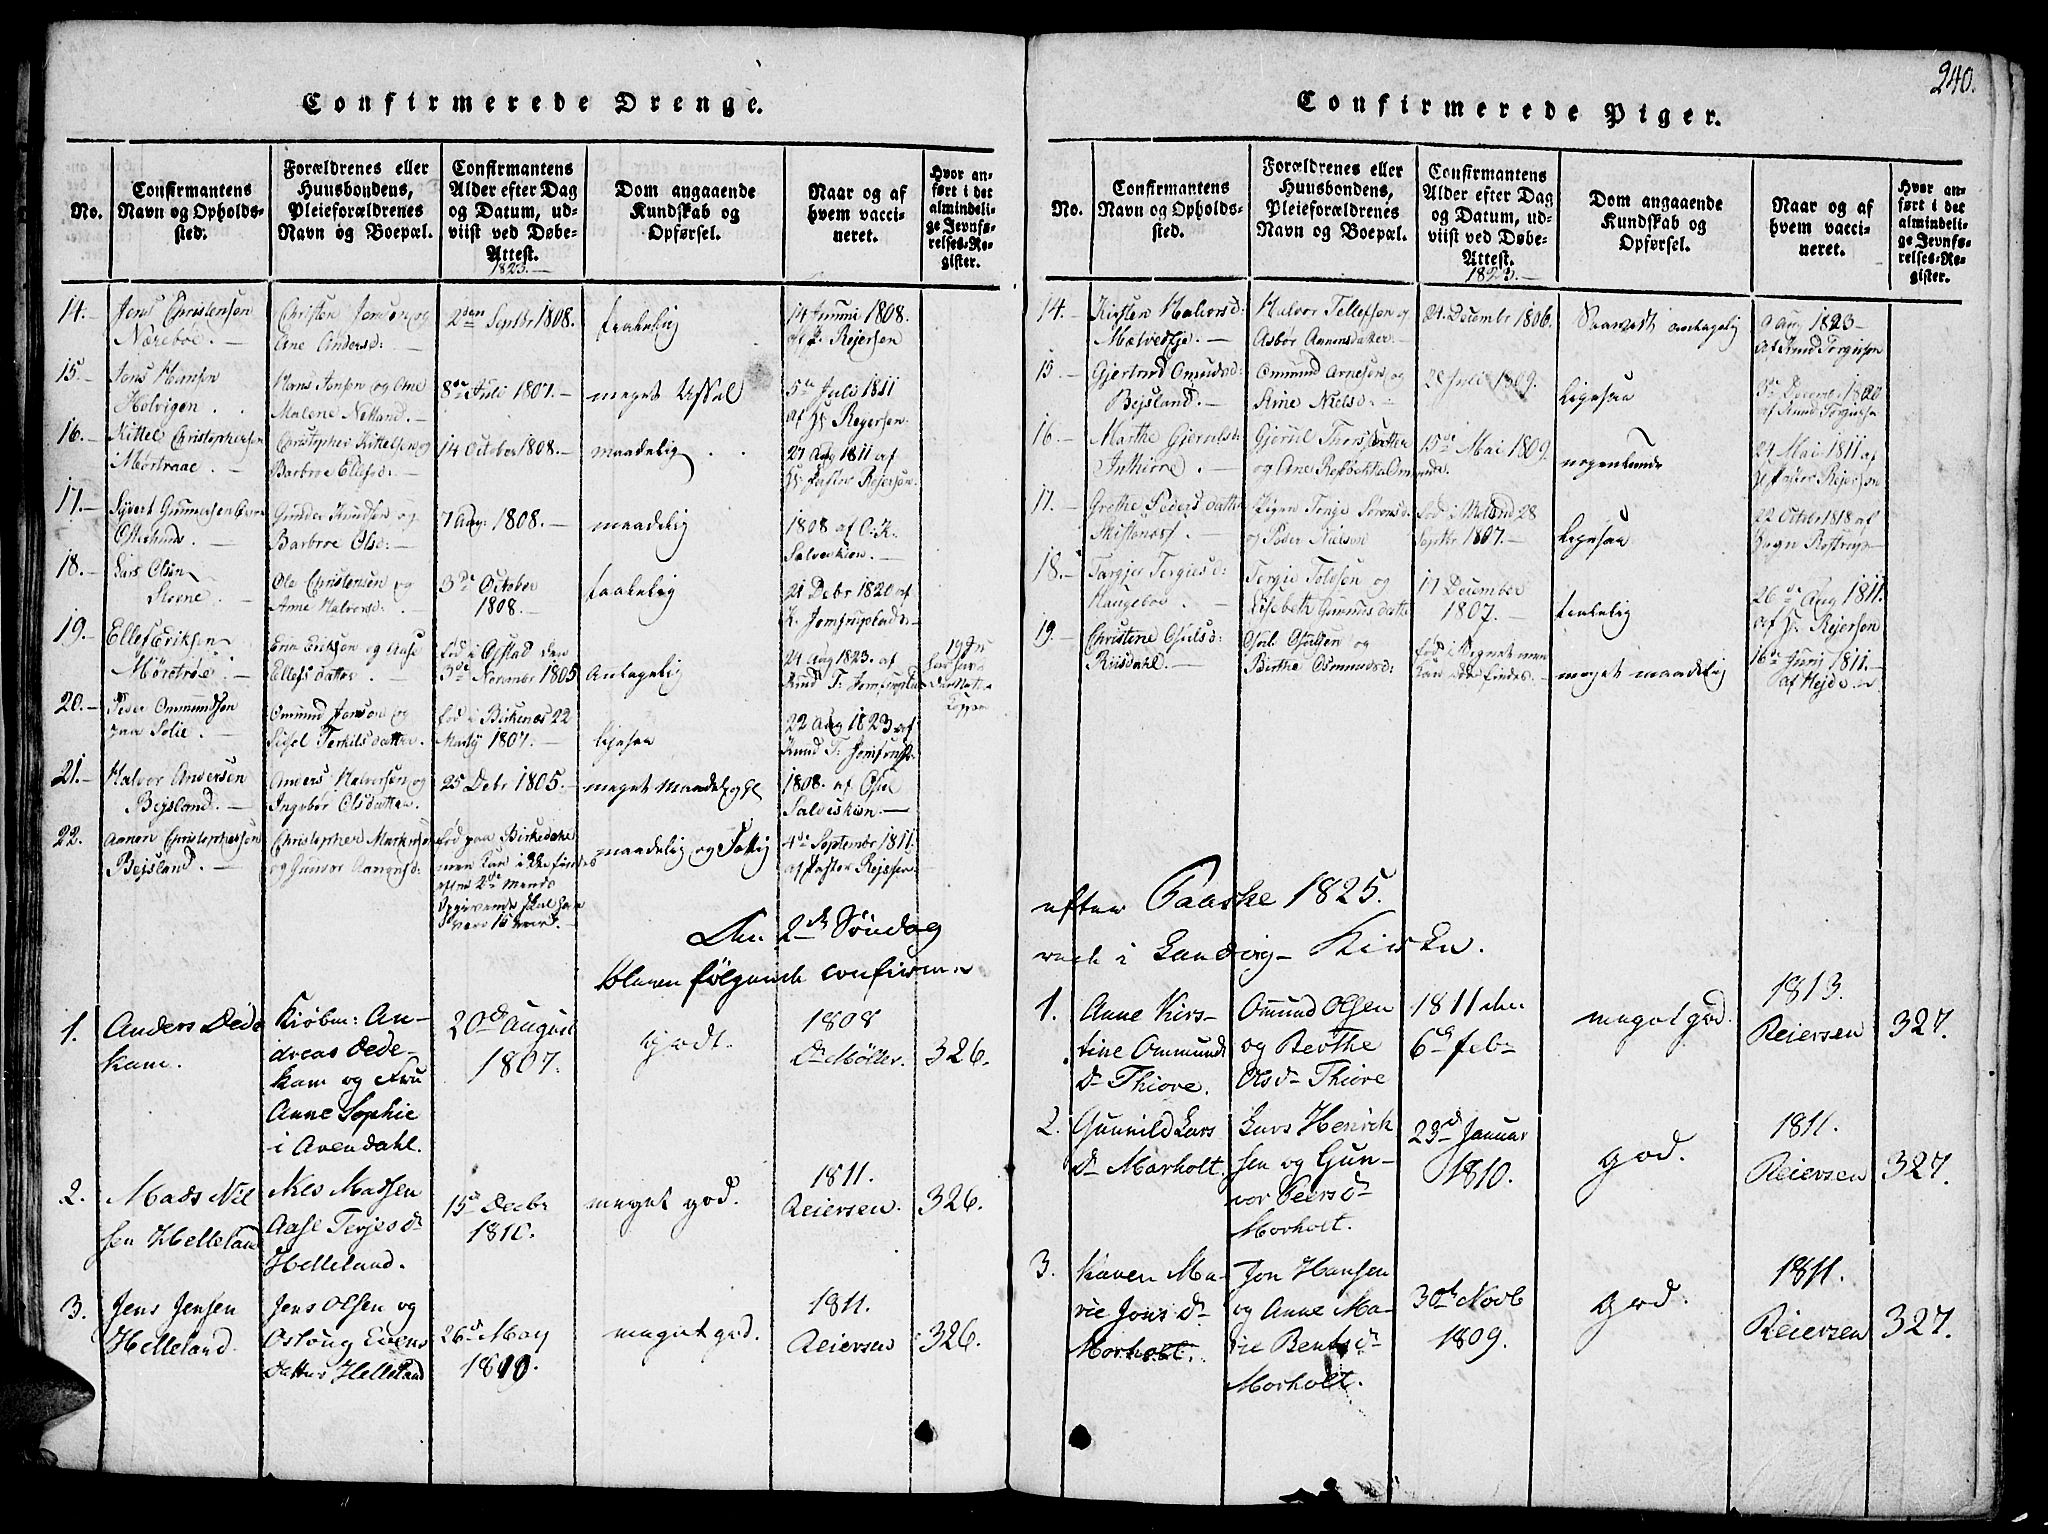 240.
Confirmerede Drenge.
No.
Confirmantens
Navn og Opholds-
sted.
Forældrenes eller
Huusbondens,
Pleieforældrenes
Navn og Boepæl.
Confirmantens
Alder efter Dag
og Datum, ud-
viist ved Døbe-
Attest.
1823.—
Dom angaaende
Kundskab og
Opførsel.
Naar og af
hvem vacci-
neret.
Hvor an-
ført i det
almindeli-
ge Jevnfø-
relses-Re-
gister.
14.— Jens Christensen
Nærebøe.—
Christen Jensen og
Ane Andersd:—
2den Septbr 1808.
taalelig
14 Junii 1808.
af P. Rejersen
15.— Jens Hansen
Holvigen.
Hans Jensen og Ane
Malene Netland.—
8de Julii 1807.—
meget Ussel
5te Julii 1811
af P. Rejersen.
16.— Kittel Christophersen
Mørtraae.—
Christopher Kittelsen og
Barbroe Ellefsd:—
14 October 1808.—
maadelig
27 Aug 1811 af
Pastor Rejersen.
17.— Sÿvert Gunnersen
.—
Gunder Knudsen og
Barbroe Olsd:—
7 Aug: 1808.—
maadelig
1808 af O. K.
Salveskien.—
18.— Lars Olsen
Steene.—
Ole Christensen og
Anne Halvorsd:.—
3de October
1808.—
taalelig
21 Debr 1820 af
K. Jomfruplads:
19.— Ellef Eriksen
Mørtrøe.—
Erik Eriksen og Aase
Ellefsdatter.—
fød i Ofstad den
3de Novembr 1805
Antagelig
24 Aug 1823. af
Knud T: Jomfrupl
20.— Peder Ommundsen
paa Solie.—
Omund Jensen og
Sissel Terkilsdatter.
fød i Birkenæs 22
Martj 1807.—
ligesaa
22 Aug 1823 af
Knud T: Jomfrupl.
21.— Halvor Andersen
Bejsland.—
Anders Halvorsen og
Ingebor Olsdatter.
25 Debr 1805.—
meget maadelig
1808. af Osul
Salveskien—
22. Aanon Christophersen
Bejsland.—
Christopher Markusen
og Gunvor Aanonsd:
fød paa Birkedahl
men kan ikke findes
efter 2de Mænds
Opgivende skal han
være 15 aar.—
maadelig og
4de Septembr 1811.
af Pastor Rejersen
Den 2de Søndag
bleven følgende confirme-
1. Anders Dede
kam.
Kiøbm: An-
dreas Dede-
kam og Fru
Anne Sophie
i Arendahl.
20de August
1807.
godt.
1808
Dr Møller.
326.
2. Mads Nil
sen Helleland
Niels Madsen
Aase Terjes dr
Helleland.
15de Decbr
1810.
meget god.
1811.
Reiersen.
326.
3. Jens Jensen
Helleland.
Jens Olsen og
Osloug Evens
Datter Helleland
26de May
1810.
meget god.
1811.
Reiersen
326.
Confirmerede Piger.
No.
Confirmantens
Navn og Opholds-
sted.
Forældrenes eller
Huusbondens,
Pleieforældrenes
Navn og Boepæl.
Confirmantens
Alder efter Dag
og Datum, ud-
viist ved Døbe-
Attest.
1823.—
Dom angaaende
Kundskab og
Opførsel.
Naar og af
hvem vacci-
neret.
Hvor an-
ført i det
almindeli-
ge Jevnfø-
relses-Re-
gister.
14.— Kirsten Halvorsd:
Halvor Tellefsen og
Asbør Aanensdatter.—
24. Decembr 1806.
antagelig
9 Aug 1823—
af Knud Torgersen
15.— Gjertrud Omundsd:
Bejsland.—
Ommund Arnesen og
Stine Nielsd.—
28 Julii 1809.
Ligesaa
3de Decembr 1820
af Knud Torgersen
16.— Marthe Gjeruldsd:
Gjerul Thorsen
og Ane
15de Mai 1809.
nogenlunde
24 Mai 1811 af
Pastor Rejersen
17.— Grethe Pedersdatter
og Peder Nielsen
fød i 28
Septbr 1807.—
Ligesaa
22 Octobr 1818 af
18.— Torgjer Tergiesd:
Haugeboe.—
Tergie Tolvsen og
Lisebeth Gunnersdatter
17 December
1807.—
taalelig
26de Aug 1811.
af P. Rejersen
19.— Christene Osulsd:
Riisdahl.—
Osul Osulsen og
Birthe Osmundsd:
fød i Vegnet men
kan ikke findes.—
meget maadelig
16de Junj 1811.—
af Hejde
efter Paaske 1825.
rede i Landvig- Kirke.
1. Anne Kirs-
tine Ommunds
Dr Thiore.
Ommund Olsen
og Berthe
Olsdr Thiore
1811 den
6de febr
meget god.
1813.
Reiersen
327.
2. Gunnild Lars
Dr Morholt.
Lars Henrik
sen og Gun-
vor Peersdr
Morholt.
23de Januar
1810.
god.
1811.
Reiersen
327.
3. Karen Ma-
rie Jons Dr
Morholt.
Jon Hansen
og Anne Ma-
rie Bentsdr
Morholt.
30de Novb
1809.
god.
1811.
Reiersen
327.